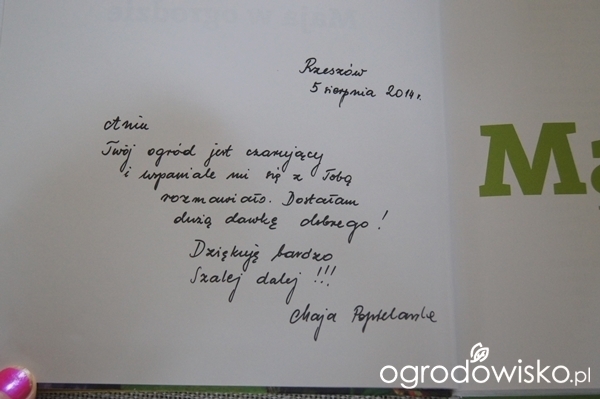 Rzeszów
5 sierpnia 2014 r.
Aniu
Twój ogród jest czarujący
i wspaniale mi się z Tobą
rozmawiało. Dostałam
dużą dawkę dobrego!
Dziękuję bardzo
Szalej dalej !!!
Maja Popielarska
Ma
ogrodowisko.pl